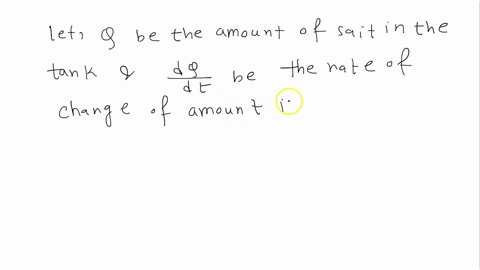 let, Q be the amount of sait in the
tank & dQ/dt be the rate of
change of amount i